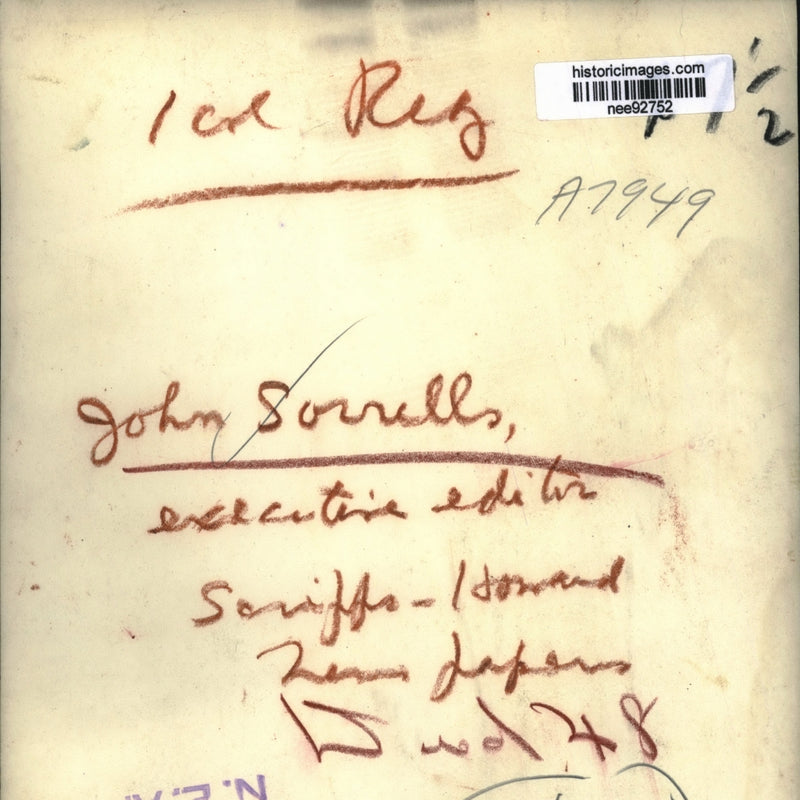 historicimages.com
nee92752
1 col Reg
A7949
John Sorrells,
executive editor
Scripps-Howard
Newspapers
Died 48
N.E.A.